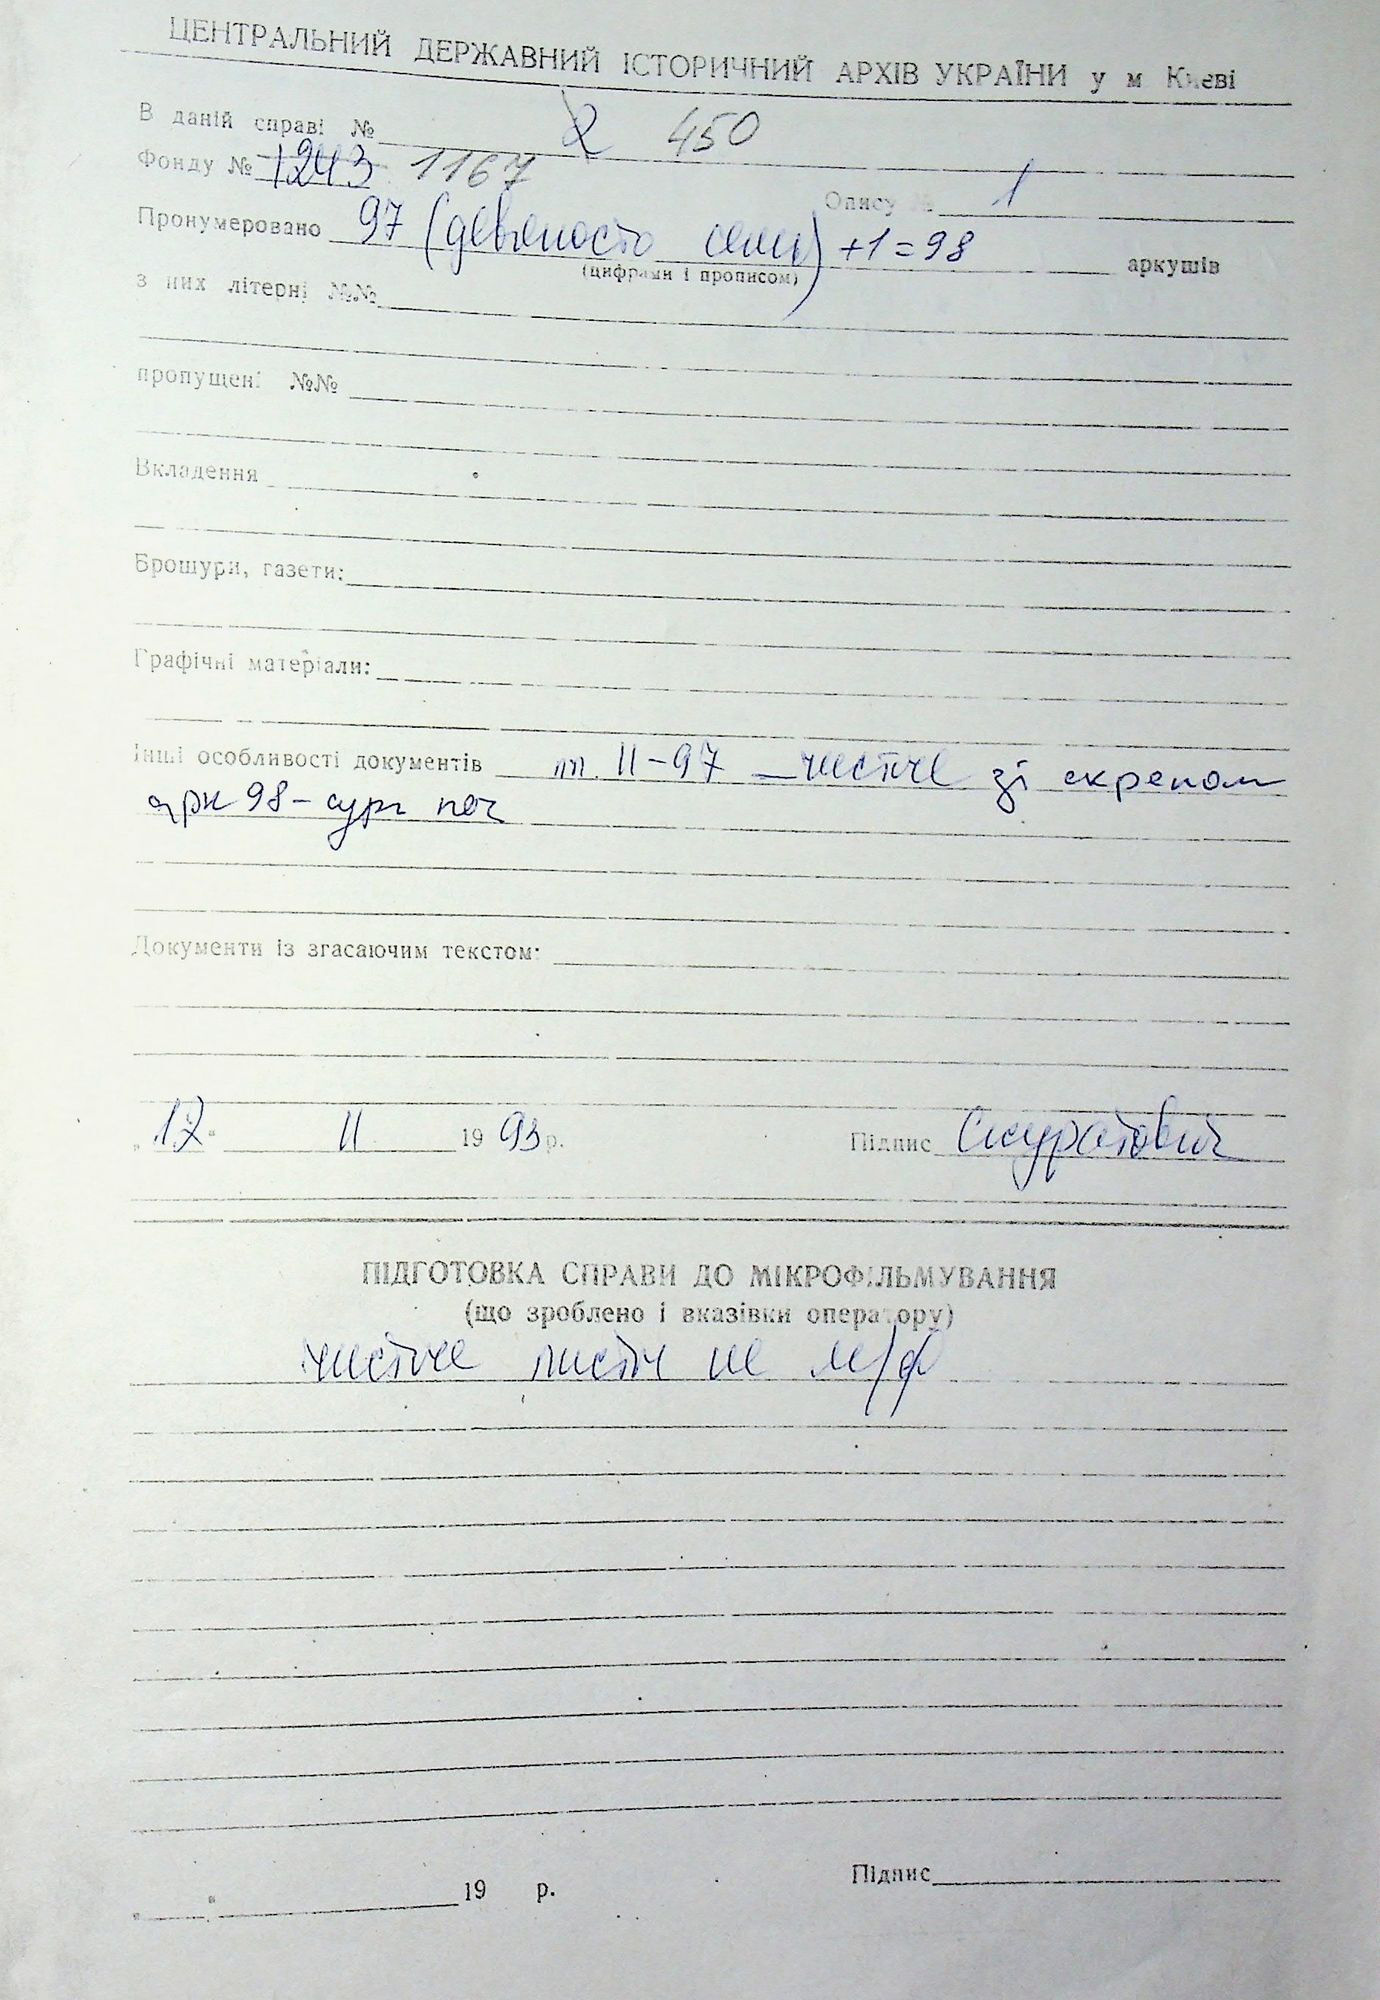 ЦЕНТРАЛЬНИЙ ДЕРЖАВНИЙ ІСТОРИЧНИЙ АРХІВ УКРАЇНИ у м Києві
В даній справі № 2 450
Фонду № 1243 1167 Опису № 1
Пронумеровано 97 (девяносто семь) +1=98 аркушів
(цифрами і прописом)
з них літерні №№
пропущені №№
Вкладення
Брошури, газети:
Графічні матеріали:
Інші особливості документів лл. 11-97 – чистые зі скрепом
арк 98 – сург печ
Документи із згасаючим текстом:
„17“ II 1993 р. Підпис Скуратович
ПІДГОТОВКА СПРАВИ ДО МІКРОФІЛЬМУВАННЯ
(що зроблено і вказівки оператору)
чистые листы не м/ф
„ “ 19 р. Підпис